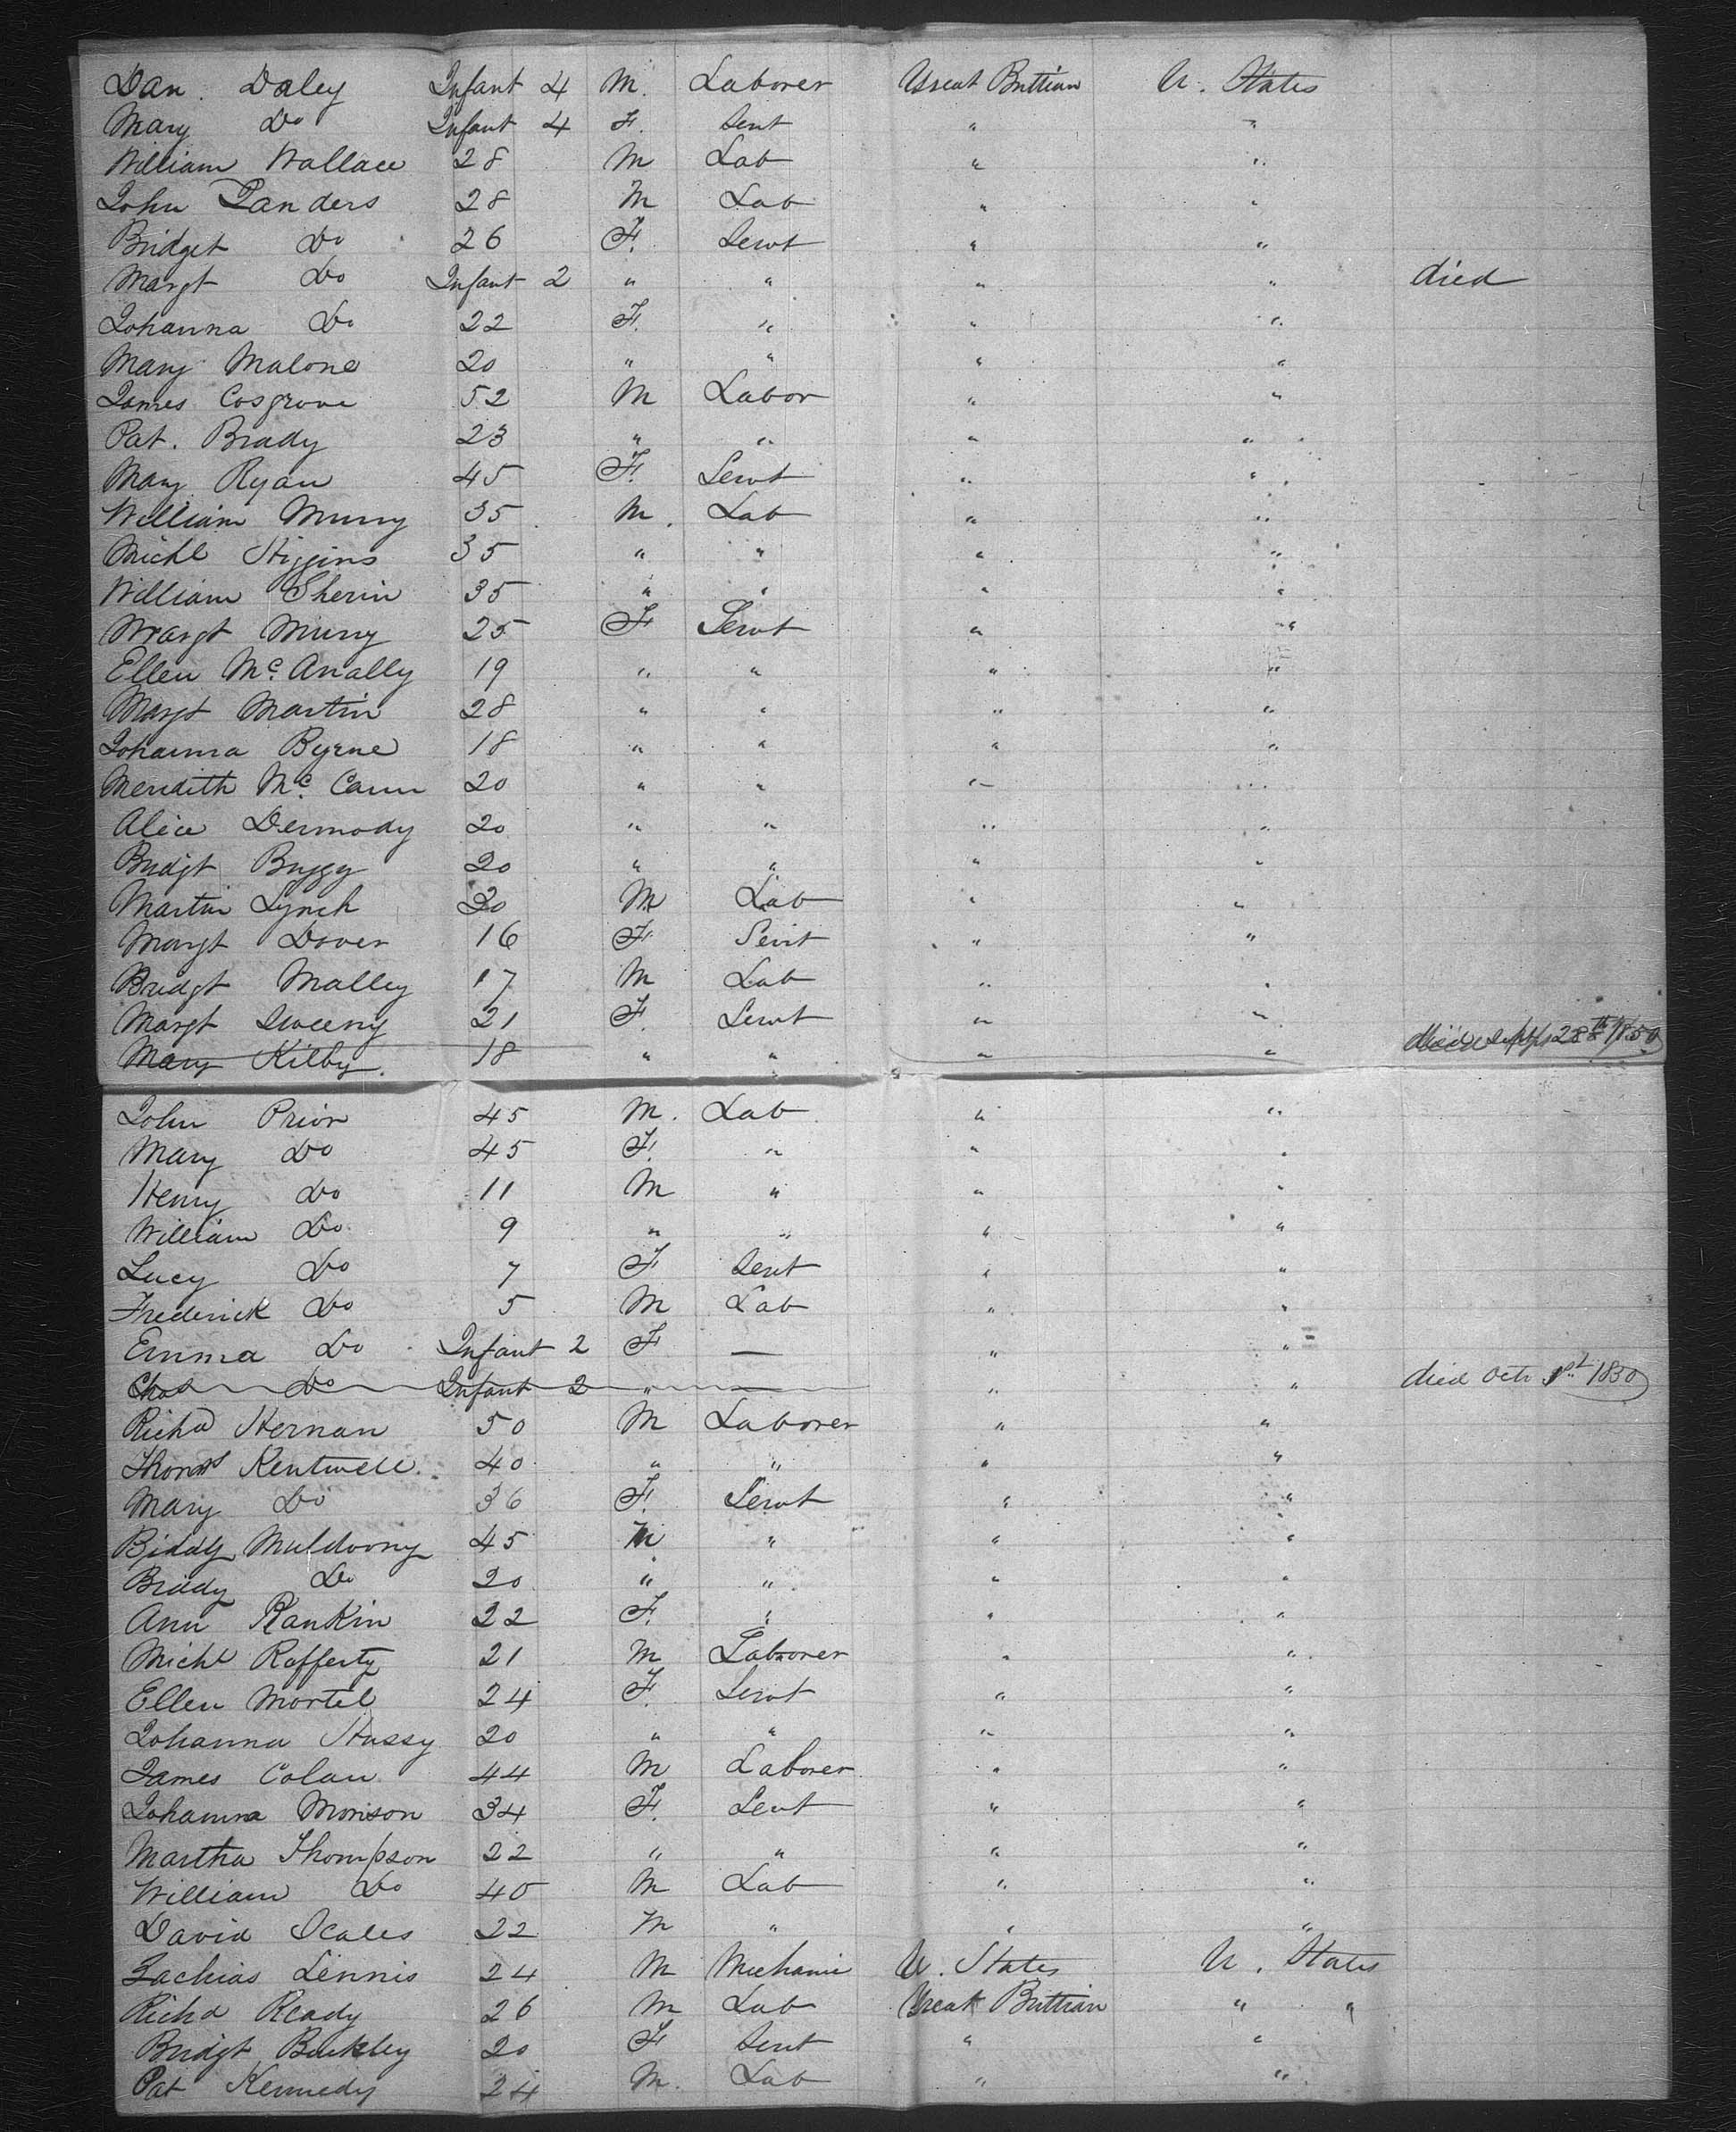 Dan. Daley Infant 4 M. Laborer Great Brittian U. States
Mary Do Infant 4 F. Sevt " "
William Wallace 28 M Lab " "
John Landers 28 M Lab " "
Bridget Do 26 F. Sevt " "
Margt Do Infant 2 " " " " died
Johanna Do 22 F. " " "
Mary Malone 20 " " " "
James Cosgrove 52 M Labor " "
Pat. Brady 23 " " " "
Mary Ryan 45 F. Sevt " "
William Murry 35 M. Lab " "
Michl Higgins 35 " " " "
William Sherin 35 " " " "
Margt Murry 25 F Sevt " "
Ellen Mc. Anally 19 " " " "
Margt Martin 28 " " " "
Johanna Byrne 18 " " " "
Meridith Mc. Cann 20 " " " "
Alice Dermody 20 " " " "
Bridgt Buggy 20 " " " "
Martin Lynch 20 M Lab " "
Margt Dover 16 F Sevt " "
Bridgt Malley 17 M Lab " "
Margt Sweeny 21 F. Sevt " "
Mary Kilby. 18 " " " " died 28th 1850
John Prior 45 M. Lab " "
Mary Do 45 F. " " "
Henry Do 11 M " " "
William Do 9 " " " "
Lucy Do 7 F Sevt " "
Frederick Do 5 M Lab " "
Emma Do Infant 2 F — " "
Chas Do Infant 2 " — " " died Octr 1st 1850
Richd Hernan 50 M Laborer " "
Thomas Kentwell 40 " " " "
Mary Do 36 F. Sevt " "
Biddy Muldoony 45 M " " "
Biddy Do 20 " " " "
Ann Rankin 22 F. " " "
Michl Rafferty 21 M Laborer " "
Ellen Mortel 24 F. Sevt " "
Johanna Hussy 20 " " " "
James Colan 44 M Laborer " "
Johanna Morison 34 F. Sevt " "
Martha Thompson 22 " " " "
William Do 40 M Lab " "
David Scales 22 M " " "
Zachias Lennis 24 M Mechanic U. States U. States
Richd Ready 26 M Lab Great Brittian " "
Bridgt Buckley 20 F Sevt " "
Pat Kennedy 24 M. Lab " "